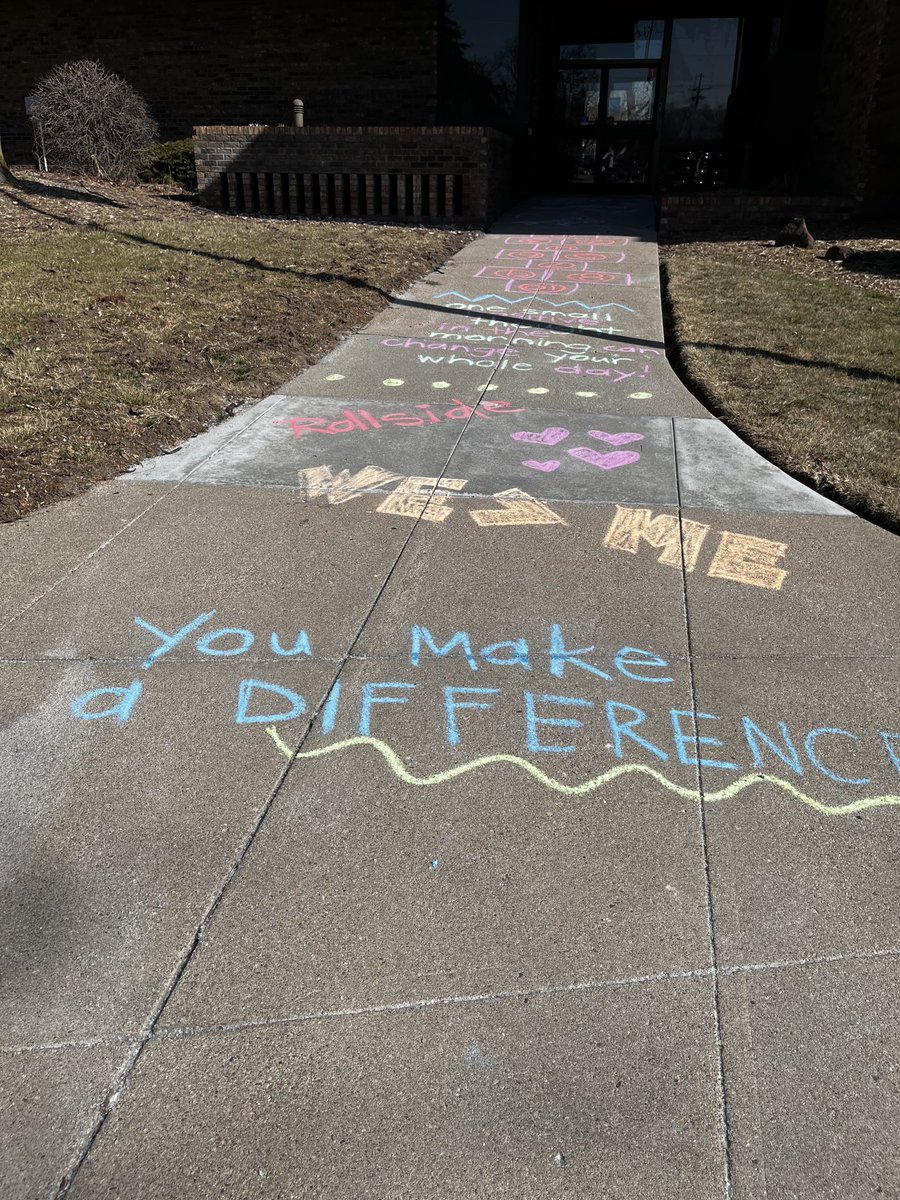 one small
thought
in the
morning can
change your
whole day!
Rollside
WE > ME
You Make
a DIFFERENCE